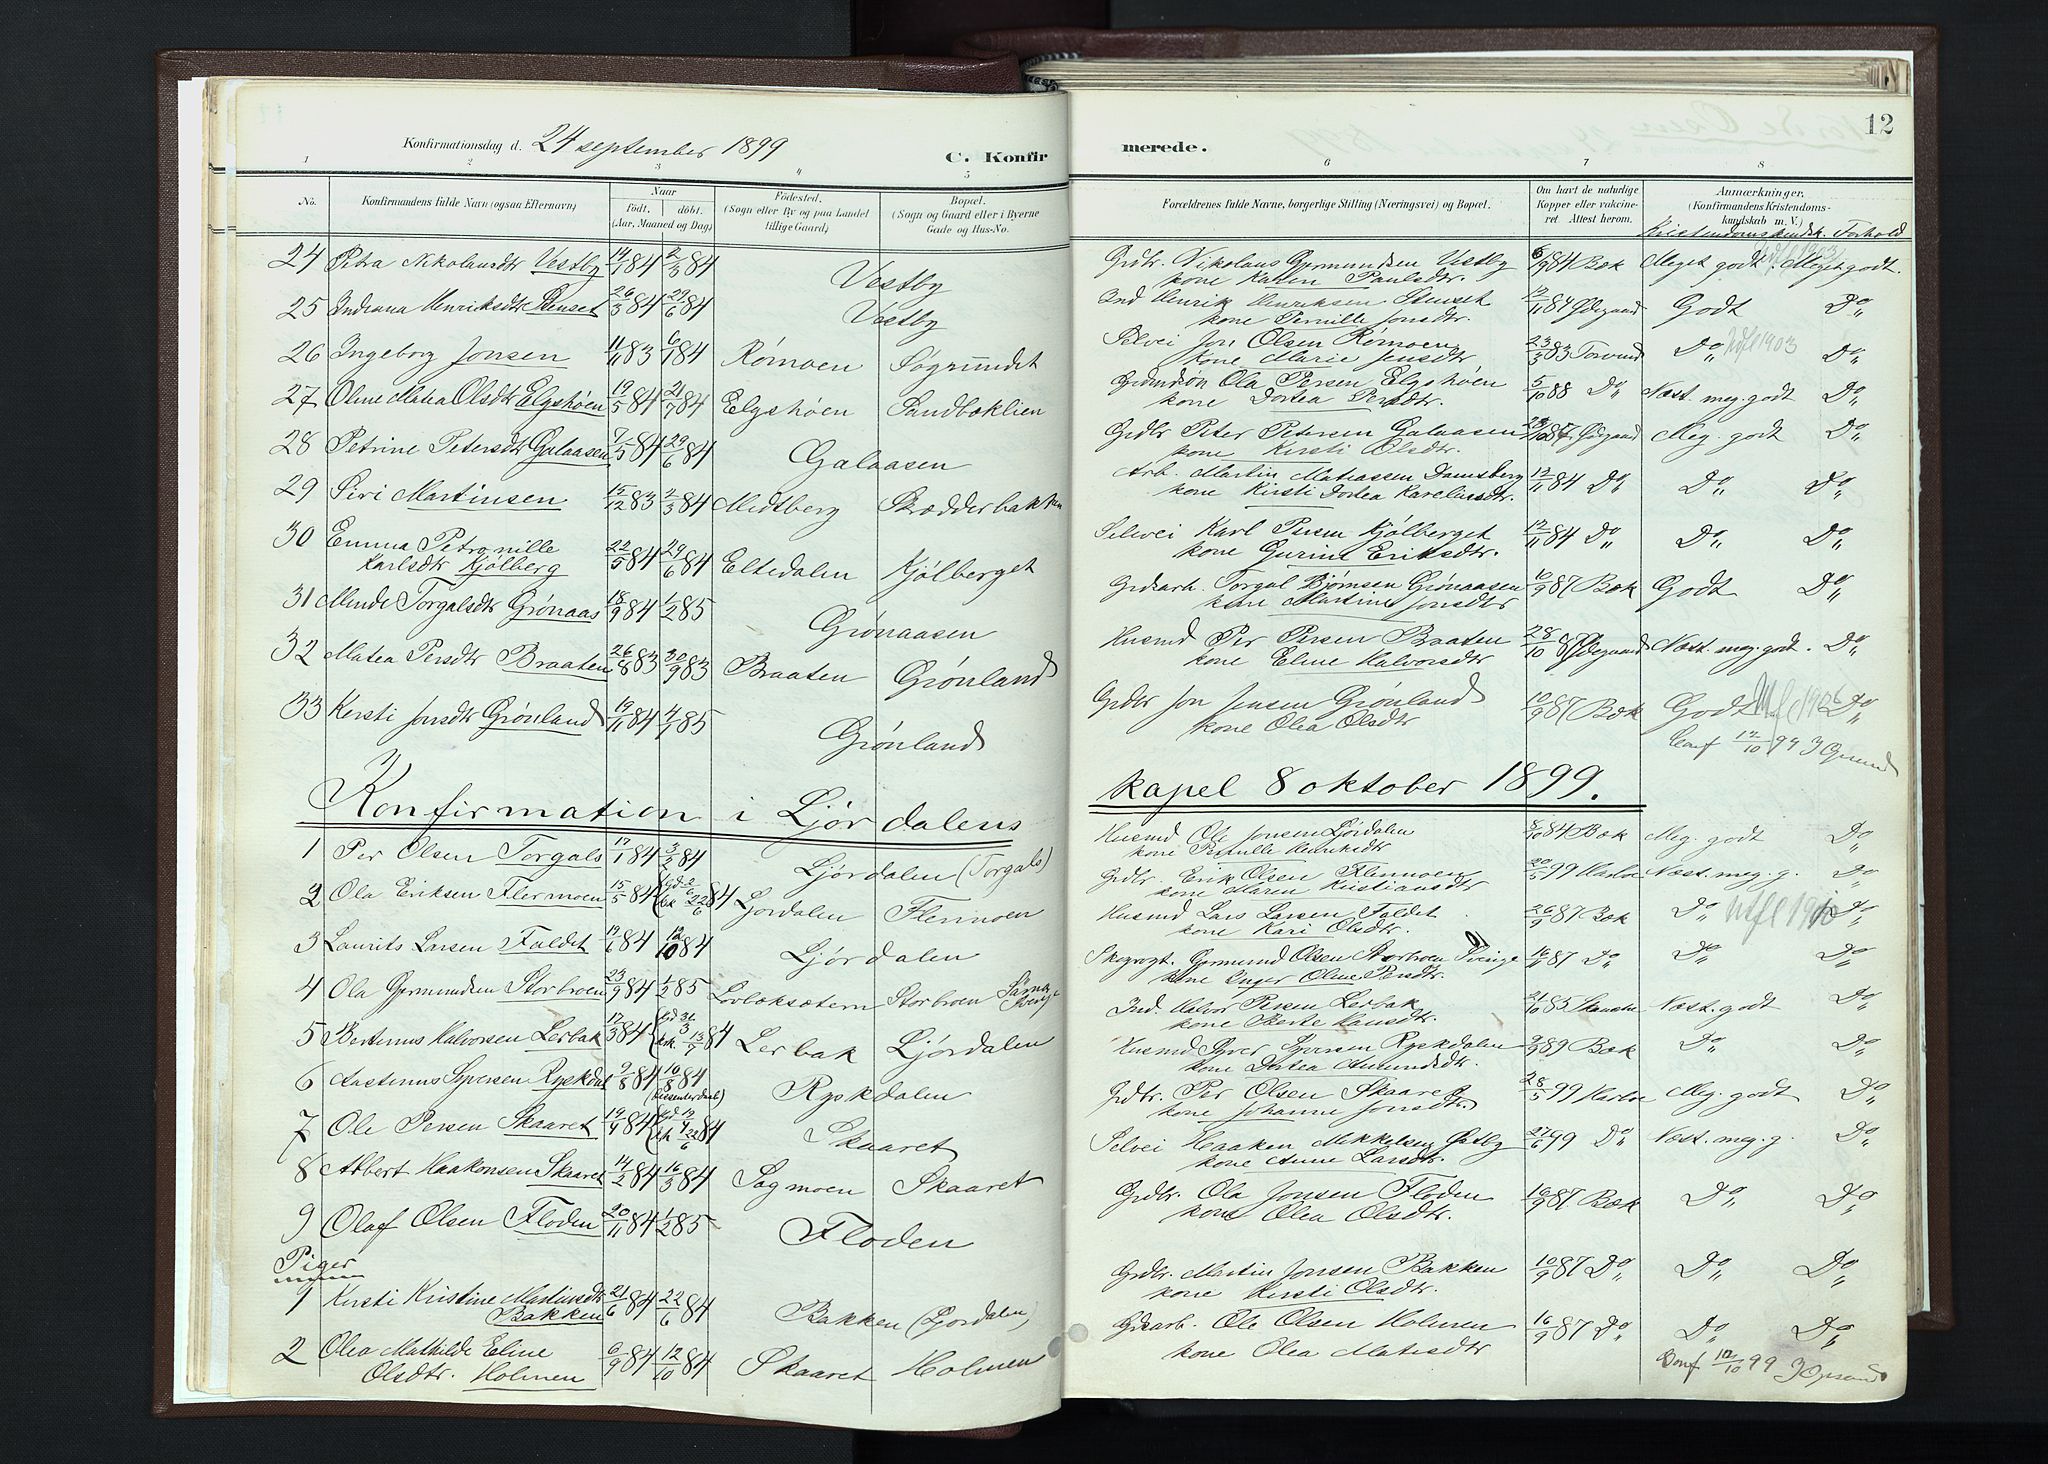 12
Konfirmationsdag d. 24 september 1899
C. Konfir
merede.
1 2 3 4 5 6 7 8
No.
Konfirmandens fulde Navn (ogsaa Efternavn).
Naar
født. døbt.
(Aar, Maaned og Dag)
Fødested.
(Sogn eller By og paa Landet tillige Gaard)
Bopæl.
(Sogn og Gaard eller i Byerne Gade og Hus-No.
Forældrenes fulde Navne, borgerlige Stilling (Næringsvei) og Bopæl.
Om havt de naturlige Kopper eller vakcineret Attest herom.
Anmærkninger.
(Konfirmandens Kristendomskundskab m. V.)
Kristendomskundsk. Forhold
24 Petra Nikolausdtr Vestby 14/1 84 2/3 84 Vestby Grdbr. Nikolaus Germundsen Vestby 6/9 84 Bæk Meget godt. Meget godt.
kone Karen Paulsdtr.
25 Indiana Henriksdtr Stenset 26/3 84 29/6 84 Vestby Ind Henrik Henriksen Stenset 12/11 84 Ødegaard Godt Do
kone Pernille Jonsdtr.
26 Ingeborg Jonsen 11/11 83 6/1 84 Rømoen Søgrundet Selvei Jon Olsen Rømoen 23/3 83 Do utfl 1903 Do
kone Marie Jensdtr
27 Oline Matea Olsdtr Elgshøen 19/5 84 21/7 84 Elgshøen Sandbæklien Grdmdsøn Ola Persen Elgshøen 5/10 88 Do Næst. meg. godt Do
kone Dortea Persdtr.
28 Petrine Petersdtr Galaasen 7/5 84 29/6 84 Galaasen Grdbr Peter Petersen Galaasen Ødegaard Meg. godt Do
kone Kirsti Olsdtr.
29 Siri Martinsen 15/12 83 2/3 84 Midtberg Skrædderbakken Arb. Martin Matiassen Damsberg 12/11 84 Do Do Do
kone Kirsti Dortea Kareliusdtr.
30 Emma Petronille 22/5 84 29/6 84 Eltedalen Kjølberget Selvei Karl Persen Kjølberget 12/11 84 Do Do Do
Karlsdtr Kjølberg kone Gurine Eriksdtr.
31 Minde Torgalsdtr Grønaas 18/9 84 1/2 85 Grønaasen Grdsarb. Torgal Bjørnsen Grønaasen 10/9 87 Bæk Godt Do
kone Martine Jonsdtr
32 Matea Persdtr Braaten 26/8 83 30/9 83 Braaten Grønland Husmd Per Persen Braaten 28/10 Ødegaard Næst. meg. godt. Do
kone Eline Halvorsdtr
33 Kersti Jonsdtr Grønland 19/11 84 4/7 85 Grønland Grdbr Jon Jensen Grønland 10/9 87 Bæk Godt Do
kone Olea Olsdtr
Conf 12/10 99
Konfirmation i Ljørdalens kapel 8 oktober 1899.
1 Per Olsen Torgals 17/1 84 3/2 84 Ljørdalen (Torgals) Husmd Ole Jonsen Ljørdalen 8/10 84 Bæk Meg. godt Do
kone Pernille Henriksdtr
2 Ola Eriksen Flermoen 15/5 84 (hd 2/6 kk 22/6 84 Ljørdalen Flermoen Grdbr. Erik Olsen Flermoen 20/5 99 Næst. meg. g. Do
kone Maren Kristiansdtr
3 Laurits Larsen Faldet 19/6 84 12/10 84 Ljørdalen Husmd Lars Larsen Faldet 26/9 87 Bæk Do Utfl 1910 Do
kone Kari Olsdtr.
4 Ola Germundsen Storbroen 23/9 84 1/2 85 Lovbæksætern Storbroen Skogvogt. Germund Olsen Storbroen 16/11 87 Do Do Do
kone Inger Oline Persdtr.
5 Berteunus Halvorsen Lerbak 17/3 84 (hd 31/3 kk. 13/7 84 Lerbak Ljørdalen Ind. Halvor Persen Lerbak 21/10 85 Næst. godt Do
kone Berte Hansdtr.
6 Aastenus Syversen Ryskdal 9/8 84 10/8 84 Ryskdalen Husmd Syver Syversen Ryskdalen 2/9 89 Bæk Do Do
(Dissenterdaab) kone Dortea Amundsdtr
7 Ole Persen Skaaret 19/4 84 kk 22/6 84 Skaaret Grdbr. Per Olsen Skaaret 28/5 99 Meg. godt Do
kone Johanne Jonsdtr.
8 Albert Haakonsen Skaaret 14/2 84 16/3 84 Sagmoen Skaaret Selvei Haaken Mikkelsen Østby 27/6 99 Do Næst. meg. g. Do
kone Anne Larsdtr.
9 Olaf Olsen Floden 20/11 84 1/2 85 Floden Grdbr. Ola Jonsen Floden 16/9 87 Bæk Do Do
kone Olea Olsdtr.
Piger
1 Kersti Kristine Martinsdtr 21/6 84 22/6 84 Bakken (Ljørdalen) Grdbr. Martin Jonsen Bakken 10/9 87 Do Do Do
Bakken kone Kersti Olsdtr.
2 Olea Mathilde Eline 6/9 84 12/10 84 Skaaret Holmen Gdsarb. Ole Olsen Holmen 16/9 87 Do Do Do
Olsdtr. Holmen kone Olea Matisdtr
Conf 12/10 99